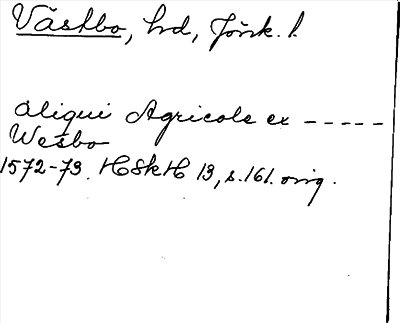 Västbo, hrd, Jönk. l.
Aliqui Agricole ex -----
Wesbo
1572-73. HSkH 13, s. 161. orig.